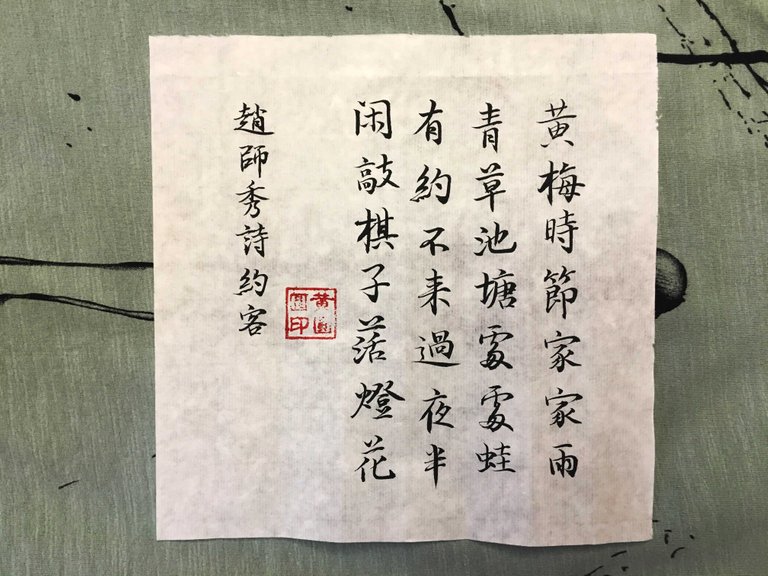 黄梅時節家家雨
青草池塘處處蛙
有約不来過夜半
闲敲棋子落燈花
趙師秀詩約客